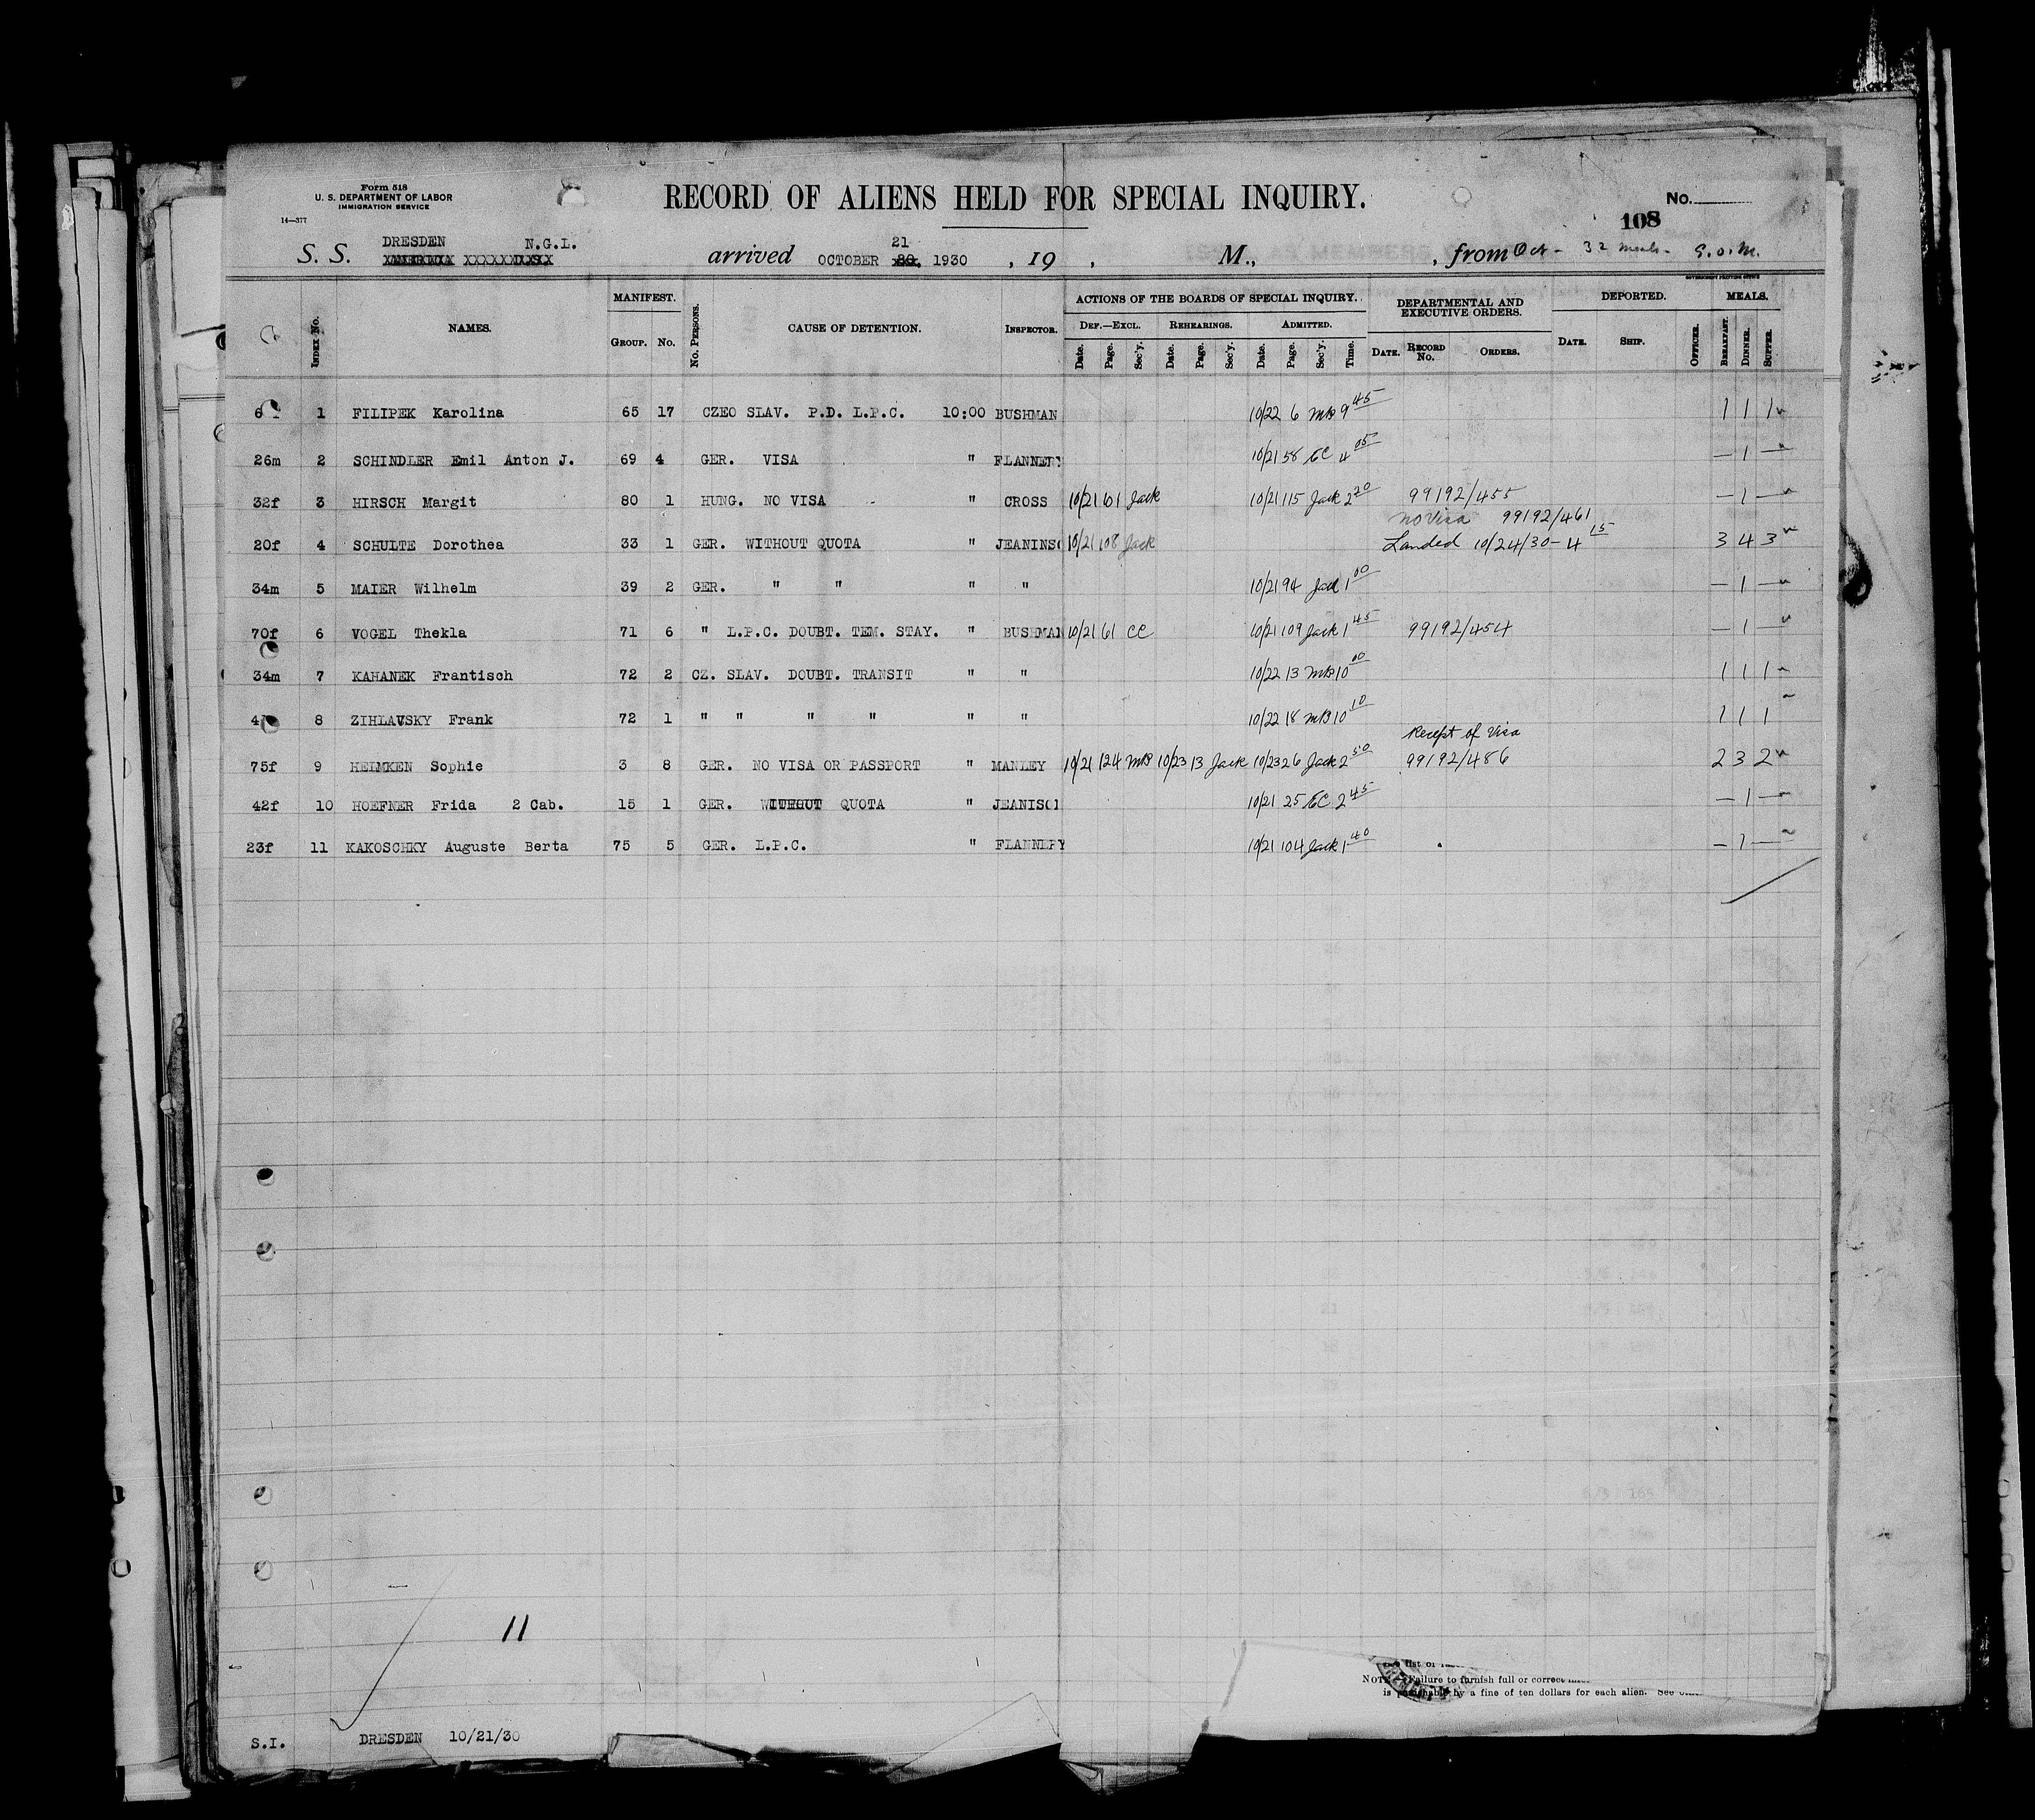 Form 518
U. S. DEPARTMENT OF LABOR
IMMIGRATION SERVICE
14—377
RECORD OF ALIENS HELD FOR SPECIAL INQUIRY.
No.
108
S. S. DRESDEN N.G.L. arrived OCTOBER 21 1930 , 19 , M., , from Oct - 32 meals - G.O.M.
GOVERNMENT PRINTING OFFICE
INDEX NO. NAMES. MANIFEST. GROUP. NO. NO. PERSONS. CAUSE OF DETENTION. INSPECTOR. ACTIONS OF THE BOARDS OF SPECIAL INQUIRY. DEPARTMENTAL AND EXECUTIVE ORDERS. DEPORTED. MEALS.
DEF.—EXCL. REHEARINGS. ADMITTED.
Date. Page. Sec'y. Date. Page. Sec'y. Date. Page. Sec'y. Time. DATE. RECORD No. ORDERS. DATE. SHIP. OFFICER. BREAKFAST. DINNER. SUPPER.
1 FILIPEK Karolina 65 17 CZEO SLAV. P.D. L.P.C. 10:00 BUSHMAN 10/22 6 MB 9 45 1 1 1
26m 2 SCHINDLER Emil Anton J. 69 4 GER. VISA " FLANNERY 10/21 58 EC 4 05 — 1 —
32f 3 HIRSCH Margit 80 1 HUNG. NO VISA " CROSS 10/21 61 Jack 10/21 115 Jack 2 20 99192/455 — 1 —
no Visa 99192/461
20f 4 SCHULTE Dorothea 33 1 GER. WITHOUT QUOTA " JEANINSO 10/21 108 Jack Landed 10/24/30 - 4 15 3 4 3
34m 5 MAIER Wilhelm 39 2 GER. " " " " 10/21 94 Jack 1 00 — 1 —
70f 6 VOGEL Thekla 71 6 " L.P.C. DOUBT. TEM. STAY. " BUSHMAN 10/21 61 CC 10/21 109 Jack 1 45 99192/454 — 1 —
34m 7 KAHANEK Frantisch 72 2 CZ. SLAV. DOUBT. TRANSIT " " 10/22 13 MB 10 00 1 1 1
8 ZIHLAVSKY Frank 72 1 " " " " " " 10/22 18 MB 10 10 1 1 1
Receipt of Visa
75f 9 HEIMKEN Sophie 3 8 GER. NO VISA OR PASSPORT " MANLEY 10/21 124 MB 10/23 13 Jack 10/23 26 Jack 2 50 99192/486 2 3 2
42f 10 HOEFNER Frida 2 Cab. 15 1 GER. WITHOUT QUOTA " JEANISON 10/21 25 EC 2 45 — 1 —
23f 11 KAKOSCHKY Auguste Berta 75 5 GER. L.P.C. " FLANNERY 10/21 104 Jack 1 40 — 1 —
11
list of
NOTE Failure to furnish full or correct
is punishable by a fine of ten dollars for each alien. See
S.I. DRESDEN 10/21/30